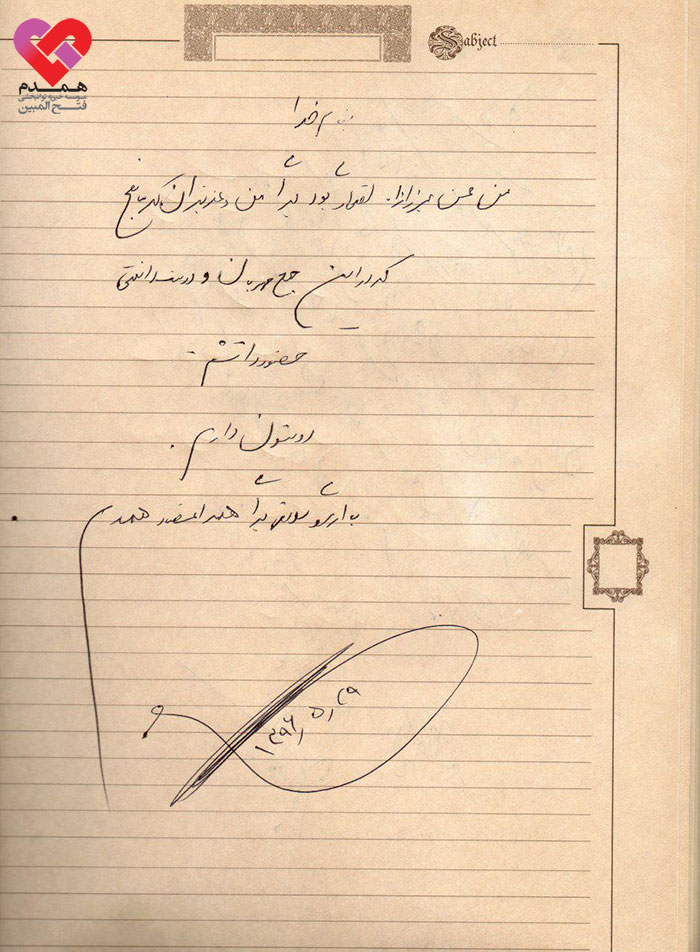 همدم
موسسه خیریه توانبخشی
فتح المبین
Sabject
بنام خدا
من افتخار بود برای من و عزیزان
که در این جمع مهربان و دوست داشتنی
حضور داشتم.
دوستون دارم.
با آرزوی موفقیت برای همه اعضاء همدم
۱۳۹۶/۵/۲۹